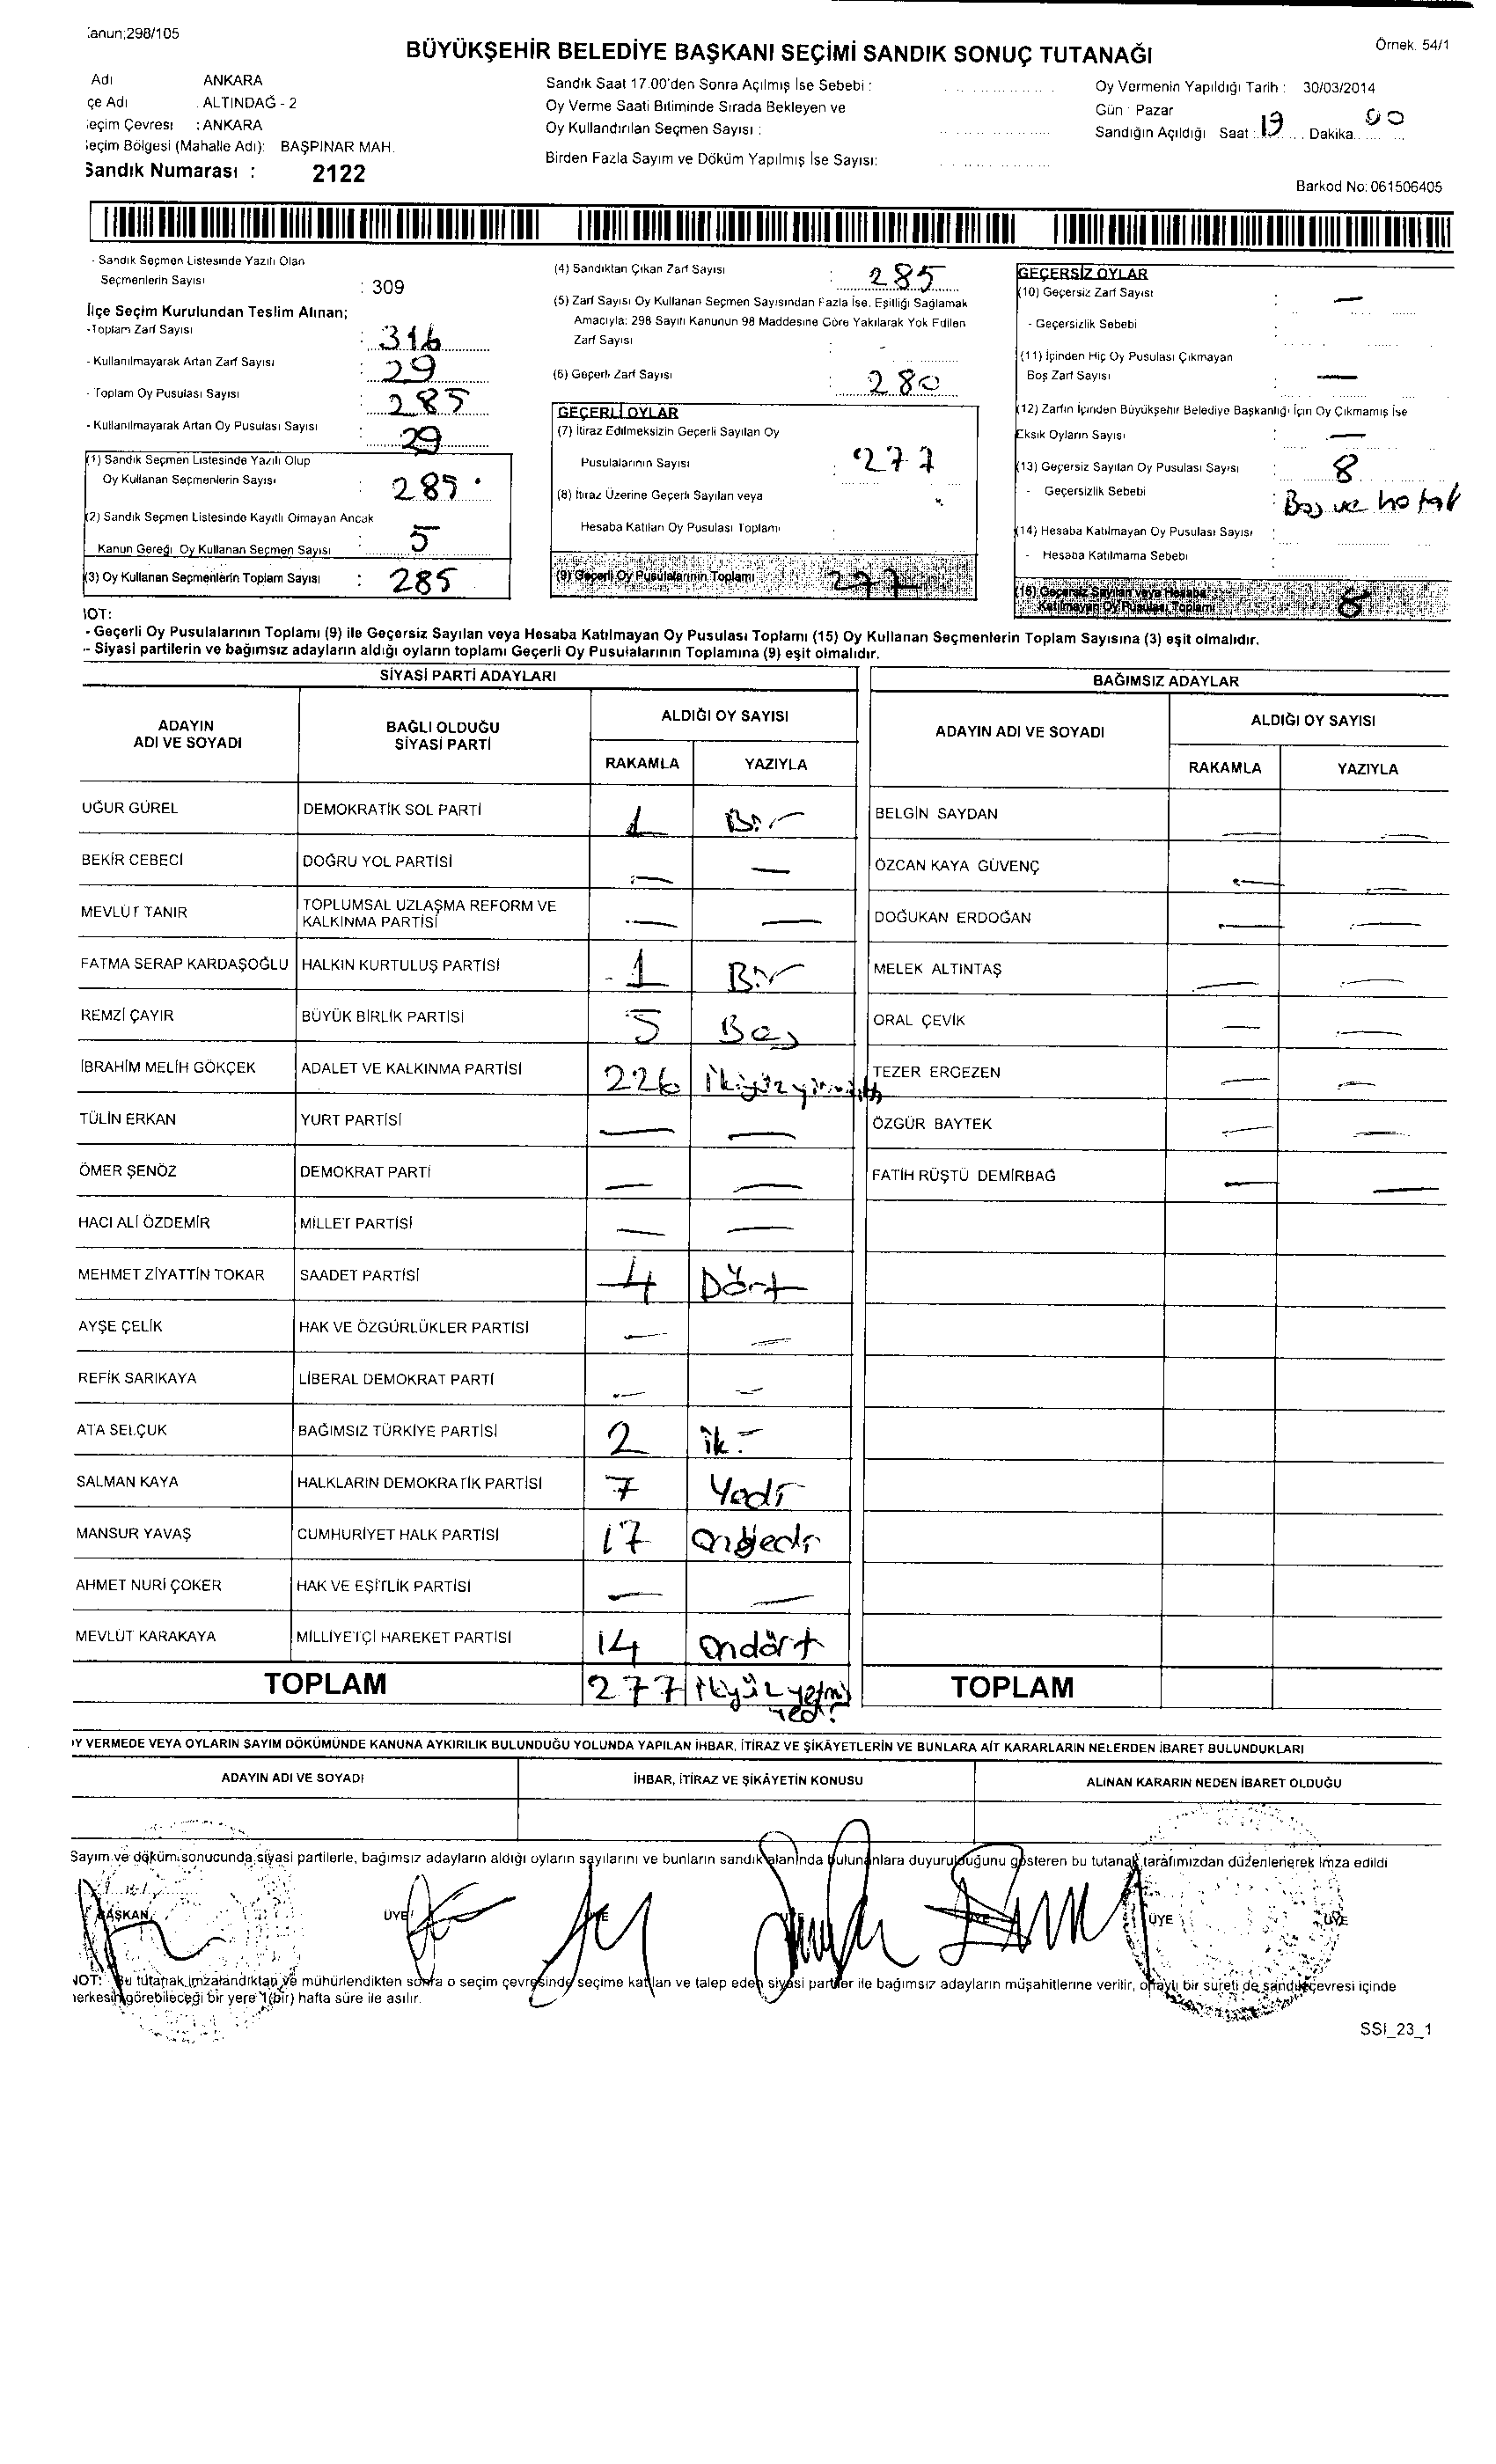 :anun;298/105
BÜYÜKŞEHİR BELEDİYE BAŞKANI SEÇİMİ SANDIK SONUÇ TUTANAĞI
Örnek. 54/1
Adı ANKARA
çe Adı . ALTINDAĞ - 2
eçim Çevresi : ANKARA
eçim Bölgesi (Mahalle Adı): BAŞPINAR MAH.
Sandık Numarası : 2122
Sandık Saat 17.00'den Sonra Açılmış İse Sebebi :
Oy Verme Saati Bitiminde Sırada Bekleyen ve
Oy Kullandırılan Seçmen Sayısı :
Birden Fazla Sayım ve Döküm Yapılmış İse Sayısı:
Oy Vermenin Yapıldığı Tarih : 30/03/2014
Gün : Pazar
Sandığın Açıldığı Saat : 19 Dakika 00
Barkod No: 061506405
- Sandık Seçmen Listesinde Yazılı Olan
Seçmenlerin Sayısı : 309
İlçe Seçim Kurulundan Teslim Alınan;
-Toplam Zarf Sayısı : 316
- Kullanılmayarak Artan Zarf Sayısı : 29
- Toplam Oy Pusulası Sayısı : 285
- Kullanılmayarak Artan Oy Pusulası Sayısı : 29
(1) Sandık Seçmen Listesinde Yazılı Olup
Oy Kullanan Seçmenlerin Sayısı : 285
(2) Sandık Seçmen Listesinde Kayıtlı Olmayan Ancak
Kanun Gereği Oy Kullanan Seçmen Sayısı : 5
(3) Oy Kullanan Seçmenlerin Toplam Sayısı : 285
(4) Sandıktan Çıkan Zarf Sayısı : 285
(5) Zarf Sayısı Oy Kullanan Seçmen Sayısından Fazla İse, Eşitliği Sağlamak
Amacıyla: 298 Sayılı Kanunun 98 Maddesine Göre Yakılarak Yok Edilen
Zarf Sayısı : -
(6) Geçerli Zarf Sayısı : 280
GEÇERLİ OYLAR
(7) İtiraz Edilmeksizin Geçerli Sayılan Oy
Pusulalarının Sayısı : 277
(8) İtiraz Üzerine Geçerli Sayılan veya
Hesaba Katılan Oy Pusulası Toplamı :
(9) Geçerli Oy Pusulalarının Toplamı : 277
GEÇERSİZ OYLAR
(10) Geçersiz Zarf Sayısı : —
- Geçersizlik Sebebi :
(11) İçinden Hiç Oy Pusulası Çıkmayan
Boş Zarf Sayısı : —
(12) Zarfın İçinden Büyükşehir Belediye Başkanlığı İçin Oy Çıkmamış İse
Eksik Oyların Sayısı : —
(13) Geçersiz Sayılan Oy Pusulası Sayısı : 8
- Geçersizlik Sebebi : Boş ve hatalı
(14) Hesaba Katılmayan Oy Pusulası Sayısı :
- Hesaba Katılmama Sebebi :
(15) Geçersiz Sayılan veya Hesaba
Katılmayan Oy Pusulası Toplamı : 8
IOT:
- Geçerli Oy Pusulalarının Toplamı (9) ile Geçersiz Sayılan veya Hesaba Katılmayan Oy Pusulası Toplamı (15) Oy Kullanan Seçmenlerin Toplam Sayısına (3) eşit olmalıdır.
- Siyasi partilerin ve bağımsız adayların aldığı oyların toplamı Geçerli Oy Pusulalarının Toplamına (9) eşit olmalıdır.
SİYASİ PARTİ ADAYLARI
BAĞIMSIZ ADAYLAR
ADAYIN ADI VE SOYADI
BAĞLI OLDUĞU SİYASİ PARTİ
ALDIĞI OY SAYISI
RAKAMLA YAZIYLA
ADAYIN ADI VE SOYADI
ALDIĞI OY SAYISI
RAKAMLA YAZIYLA
UĞUR GÜREL DEMOKRATİK SOL PARTİ 1 Bir BELGİN SAYDAN — —
BEKİR CEBECİ DOĞRU YOL PARTİSİ — — ÖZCAN KAYA GÜVENÇ — —
MEVLÜT TANIR TOPLUMSAL UZLAŞMA REFORM VE KALKINMA PARTİSİ — — DOĞUKAN ERDOĞAN — —
FATMA SERAP KARDAŞOĞLU HALKIN KURTULUŞ PARTİSİ 1 Bir MELEK ALTINTAŞ — —
REMZİ ÇAYIR BÜYÜK BİRLİK PARTİSİ 5 Beş ORAL ÇEVİK — —
İBRAHİM MELİH GÖKÇEK ADALET VE KALKINMA PARTİSİ 226 ikiyüzyirmialtı TEZER ERGEZEN — —
TÜLİN ERKAN YURT PARTİSİ — — ÖZGÜR BAYTEK — —
ÖMER ŞENÖZ DEMOKRAT PARTİ — — FATİH RÜŞTÜ DEMİRBAĞ — —
HACI ALİ ÖZDEMİR MİLLET PARTİSİ — —
MEHMET ZİYATTİN TOKAR SAADET PARTİSİ 4 Dört
AYŞE ÇELİK HAK VE ÖZGÜRLÜKLER PARTİSİ — —
REFİK SARIKAYA LİBERAL DEMOKRAT PARTİ — —
ATA SELÇUK BAĞIMSIZ TÜRKİYE PARTİSİ 2 iki
SALMAN KAYA HALKLARIN DEMOKRATİK PARTİSİ 7 Yedi
MANSUR YAVAŞ CUMHURİYET HALK PARTİSİ 17 Onyedi
AHMET NURİ ÇOKER HAK VE EŞİTLİK PARTİSİ — —
MEVLÜT KARAKAYA MİLLİYETÇİ HAREKET PARTİSİ 14 Ondört
TOPLAM 277 ikiyüzyetmişyedi TOPLAM
IY VERMEDE VEYA OYLARIN SAYIM DÖKÜMÜNDE KANUNA AYKIRILIK BULUNDUĞU YOLUNDA YAPILAN İHBAR, İTİRAZ VE ŞİKÂYETLERİN VE BUNLARA AİT KARARLARIN NELERDEN İBARET BULUNDUKLARI
ADAYIN ADI VE SOYADI İHBAR, İTİRAZ VE ŞİKÂYETİN KONUSU ALINAN KARARIN NEDEN İBARET OLDUĞU
Sayım ve döküm sonucunda siyasi partilerle, bağımsız adayların aldığı oyların sayılarını ve bunların sandık alanında bulunanlara duyurulduğunu gösteren bu tutanak tarafımızdan düzenlenerek imza edildi
BAŞKAN ÜYE ÜYE ÜYE ÜYE ÜYE ÜYE
NOT: Bu tutanak imzalandıktan ve mühürlendikten sonra o seçim çevresinde seçime katılan ve talep eden siyasi partiler ile bağımsız adayların müşahitlerine verilir, onaylı bir sureti de sandık çevresi içinde
herkesin görebileceği bir yere 1(bir) hafta süre ile asılır.
SSI_23_1